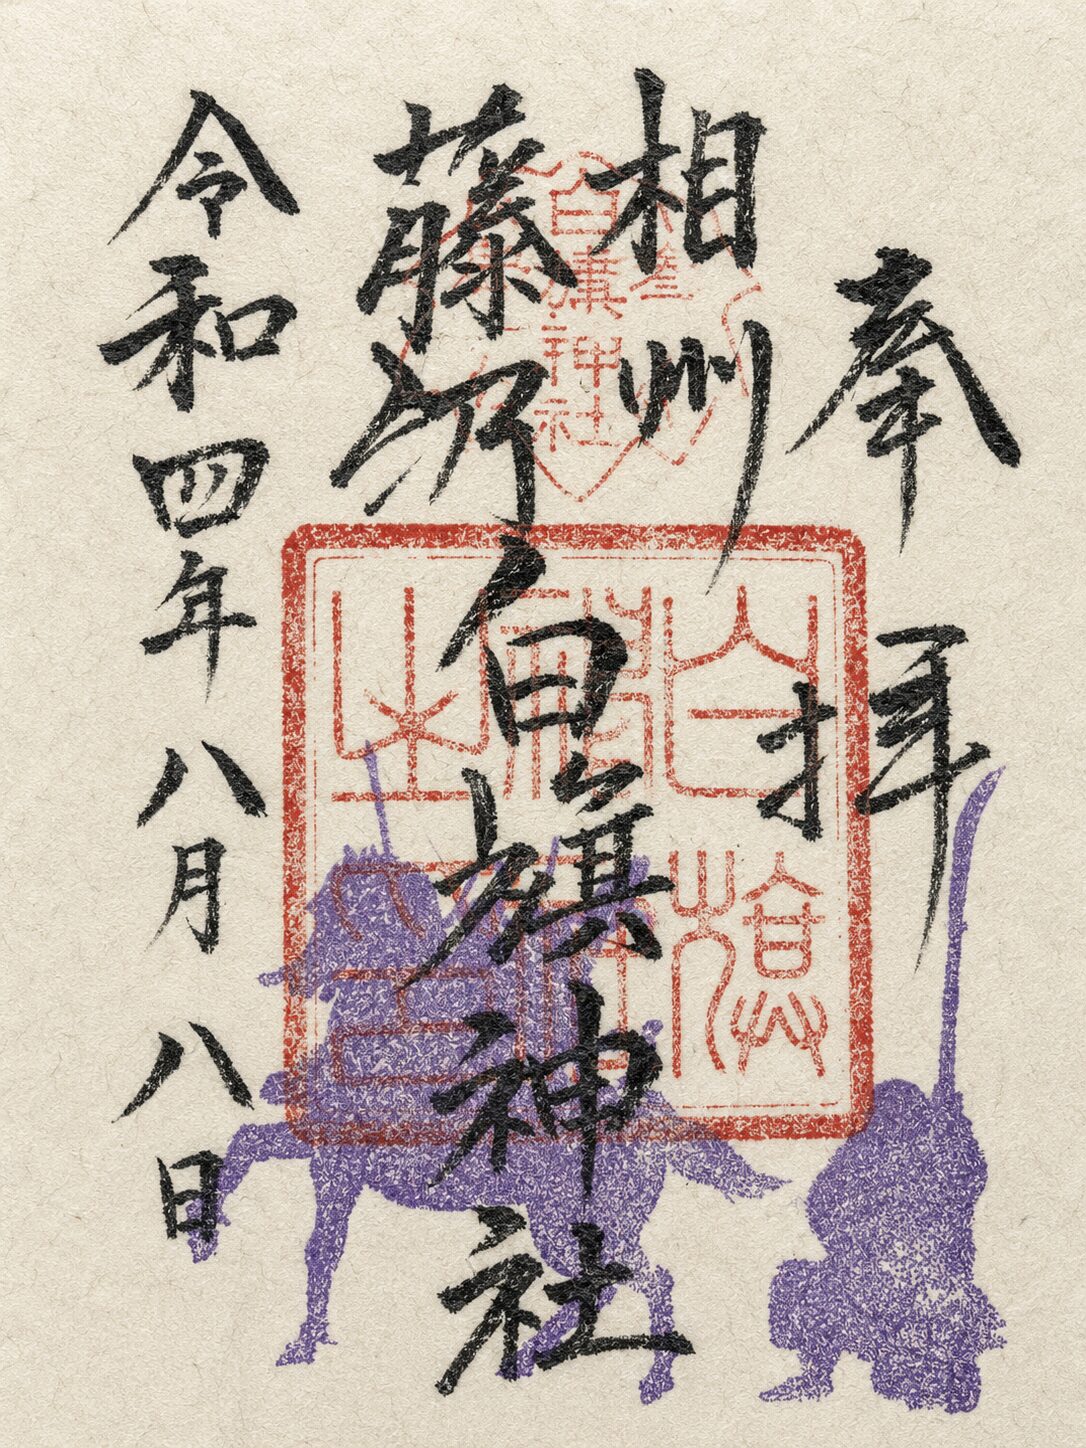 奉拝
相州
藤沢白旗神社
令和四年八月八日
白旗神社